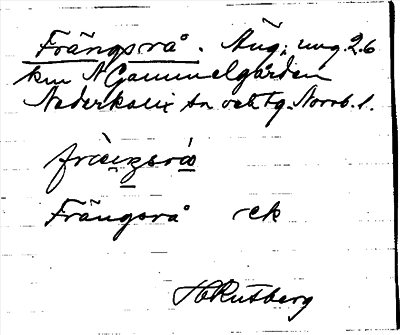 Frängsrå. Äng; ung. 2.6
km N Gammelgården
Nederkalix sn och tg. Norrb. l.
Frängsrå rek
H Rutberg